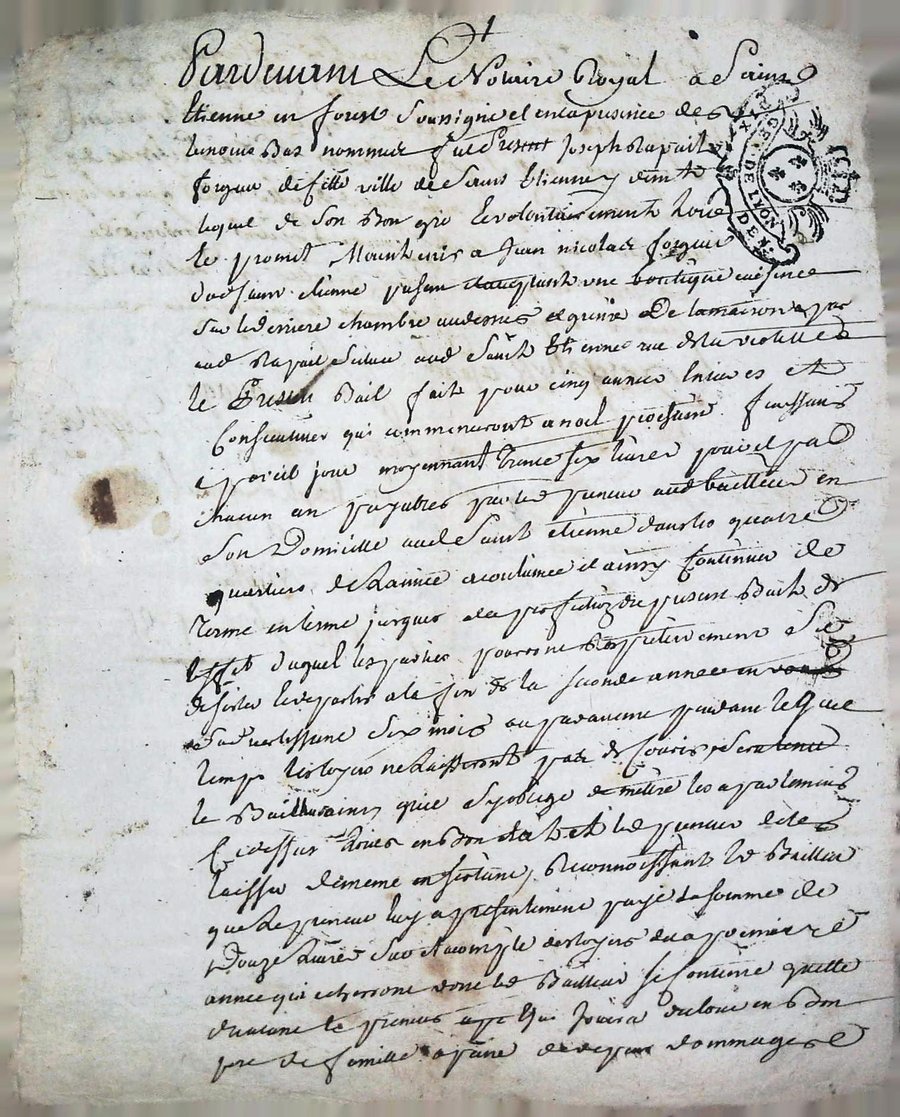 Pardevant Le Notaire Royal a Saint
Etienne en forest Soussigné et en la presence des
temoins Bas nommez fut Present Joseph Rapail
forgeur de cette ville de Saint Etienne y demt
lequel de Son Bon gré et volontairement a Loué
et promit Maintenir a Jean nicolas forgeur
dud Saint etienne present et acceptant une boutique cuisine
Sur le derriere chambre audessus et grenier De la maison a
aud Rapail Située aud Saint Etienne rue de la
le Present Bail fait pour cinq années Entieres et
Consecutives qui commenceront a noel prochain finissant
a pareil jour moyennant Trente Six Livres pour et par
chacun an payables par led preneur aud bailleur en
Son Domicille aud Saint etienne dans les quatre
quartiers de L'année ecoulamée et ainsy Continuer de
Terme en terme jusques a la du present Bail de
L'effet duquel les parties pourront Respectivement Se
desister et departir a la fin de la Seconde année en
S'advertissant Six mois auparavant pendant le quel
temps les loyers ne Laisseront pas de Courir Sera tenu
le Bailleur ainsy qu'il S'y oblige de mettre les apartemens
Cy dessus Loués en Bon etat et led preneur de les
laisser de meme en Sortant, Reconnoissant led Bailleur
que Le preneur luy a presentement payé La Somme de
Douze Livres Sur et acompte des loyers de la premiere
année qui echerront dont led Bailleur Se Contente quitte
d'autant le preneur qui Jouira du loué en Bon
pere de famille a paine de dommages
X GE. DE LYON